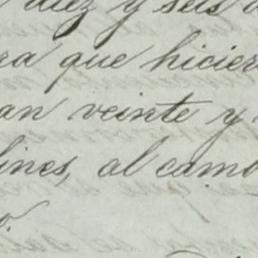 diez y seis
ra que hicier
an veinte y
lines, al camb
o.